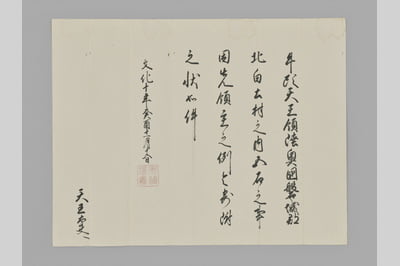 牛頭天王領陸奥国磐城郡
北白土村之内五石之事
因先領主之例令寄附
之状如件
文化十年癸酉十一月
天王